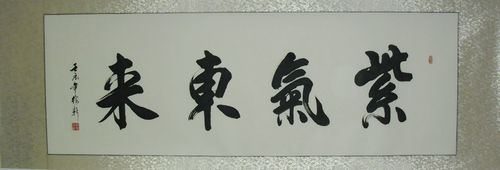 紫氣東来
壬辰年